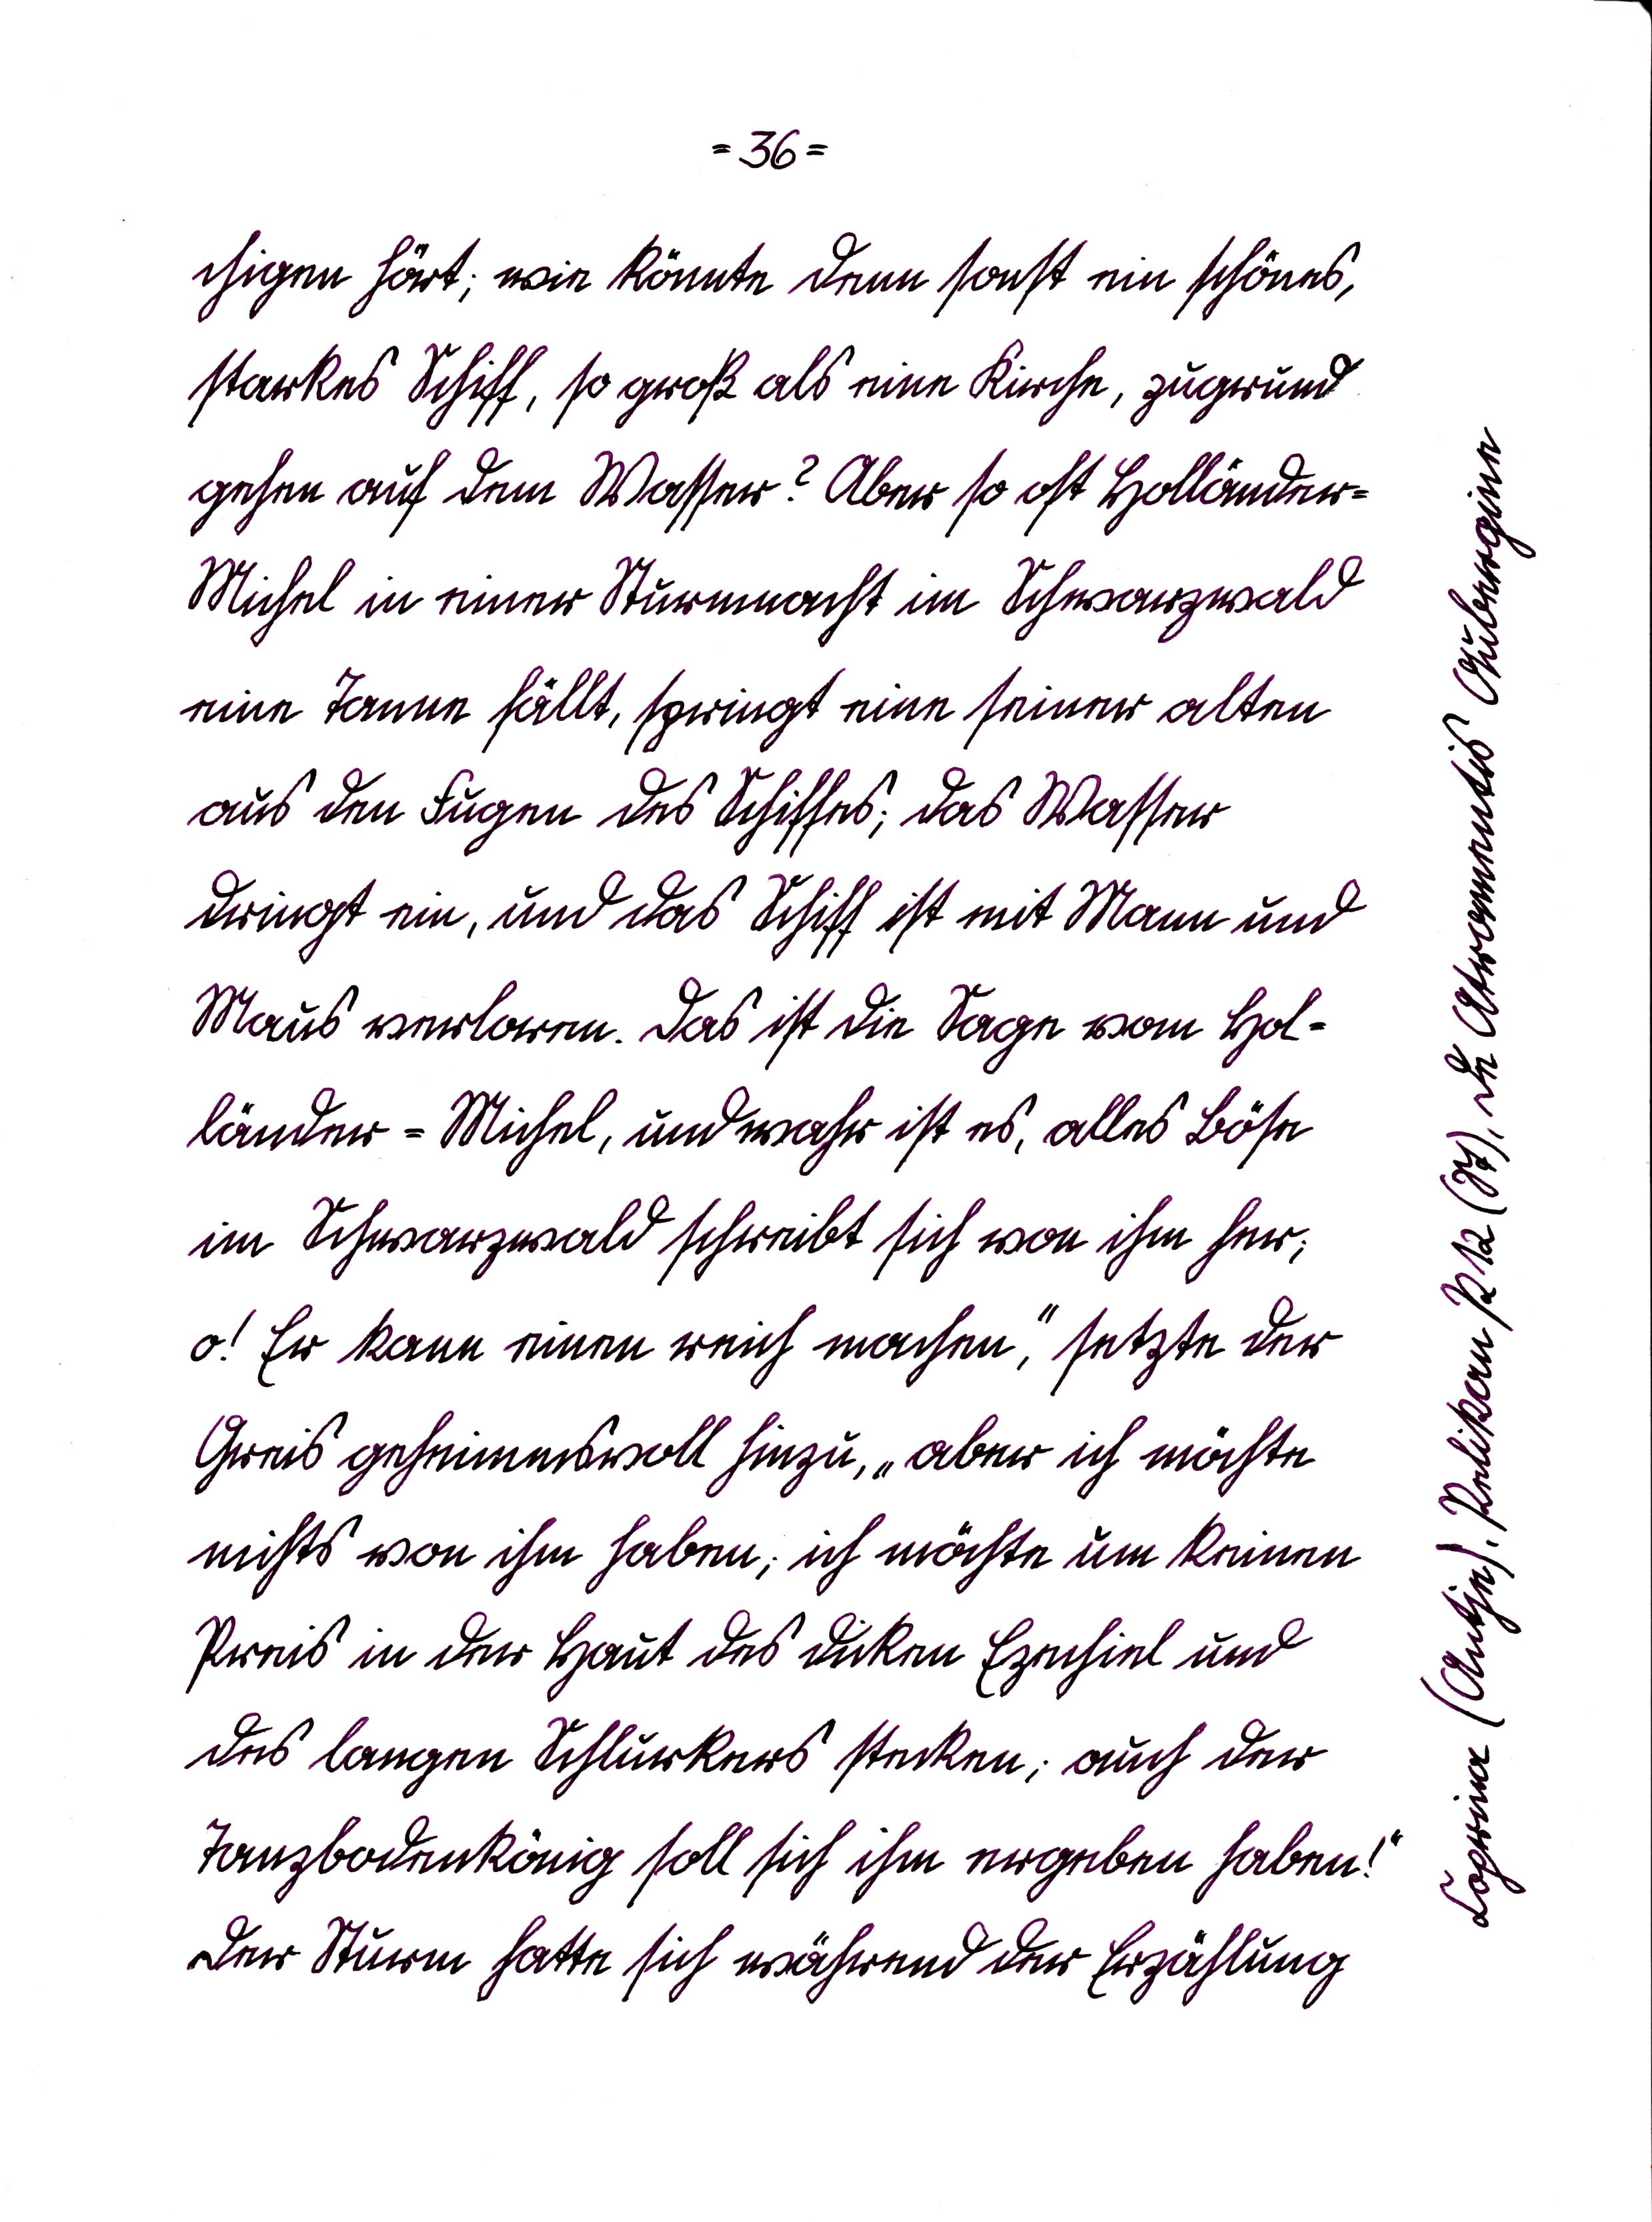 = 36 =
chigen hört; wie könnte denn sonst ein schönes,
starkes Schiff, so groß als eine Kirche, zugrund
gehen auf dem Wasser? Aber so oft Holländer=
Michel in einer Sturmnacht im Schwarzwald
eine Tanne fällt, springt eine seiner alten
aus den Fugen des Schiffes; das Wasser
dringt ein, und das Schiff ist mit Mann und
Maus verloren. Das ist die Sage vom Hol=
länder=Michel, und wahr ist es, alles Böse
im Schwarzwald schreibt sich von ihm her;
o! Er kann einen reich machen," setzte der
Greis geheimnisvoll hinzu, „aber ich möchte
nichts von ihm haben; ich möchte um keinen
Preis in der Haut des dicken Ezechiel und
des langen Schlurkers stecken; auch der
Tanzbodenkönig soll sich ihm ergeben haben!"
Der Sturm hatte sich während der Erzählung
(Antje), Pelikan P 12, De Atramentis Aubergine